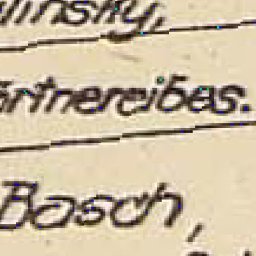 linsky,
ärtnereibes.
Basch,